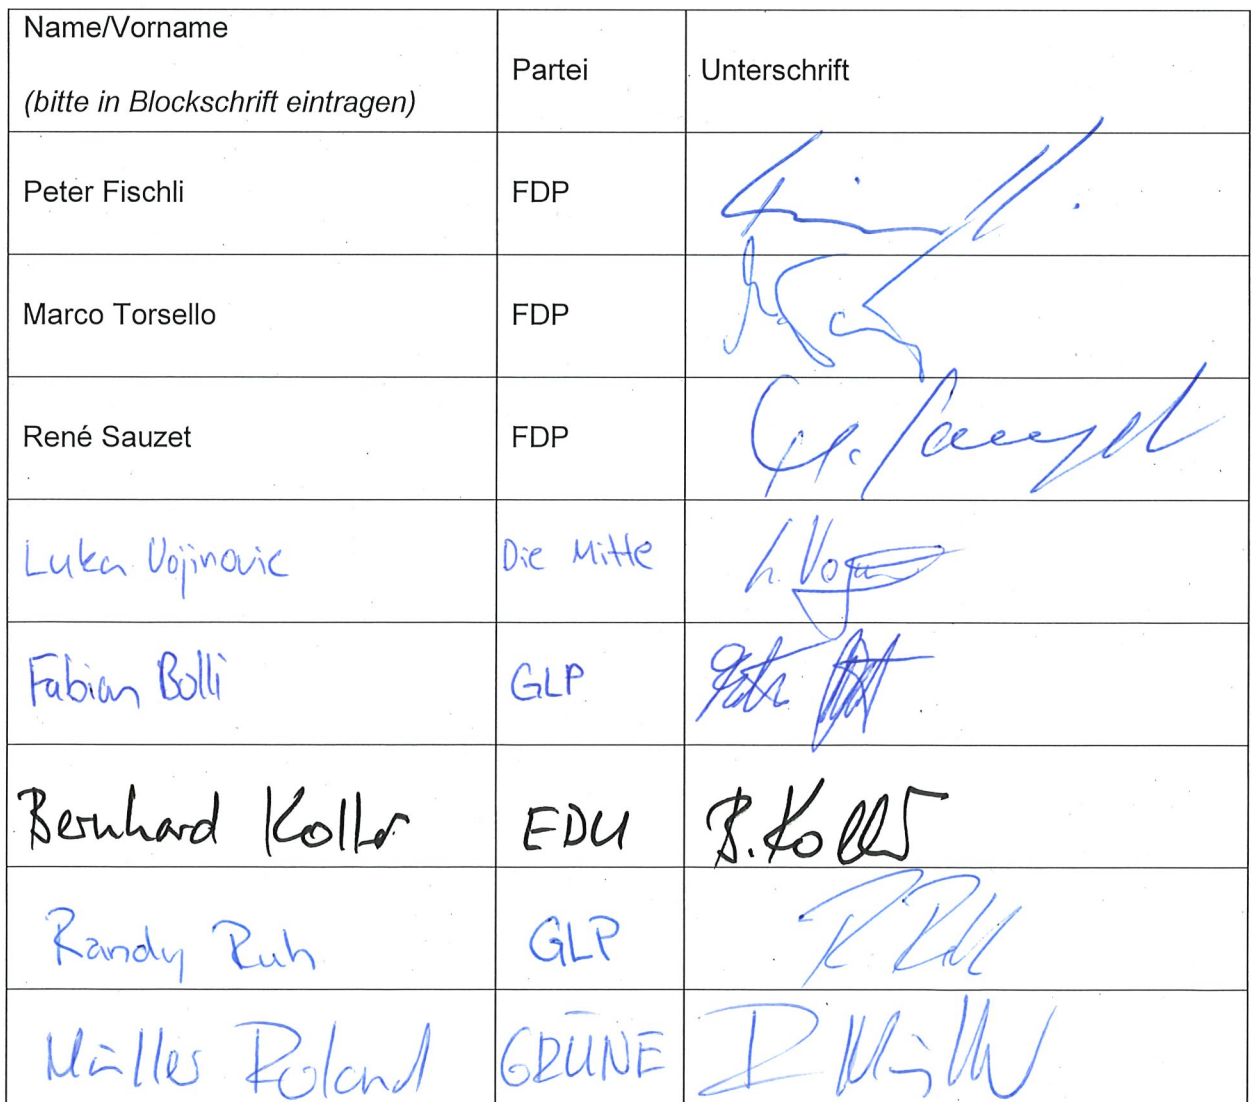 Name/Vorname
(bitte in Blockschrift eintragen)
Partei
Unterschrift
Peter Fischli FDP
Marco Torsello FDP
René Sauzet FDP
Luka Vojinovic Die Mitte L. Voj
Fabian Bolli GLP
Bernhard Koller EDU B. Koller
Randy Ruh GLP R. Ruh
Müller Roland GRÜNE R Müller